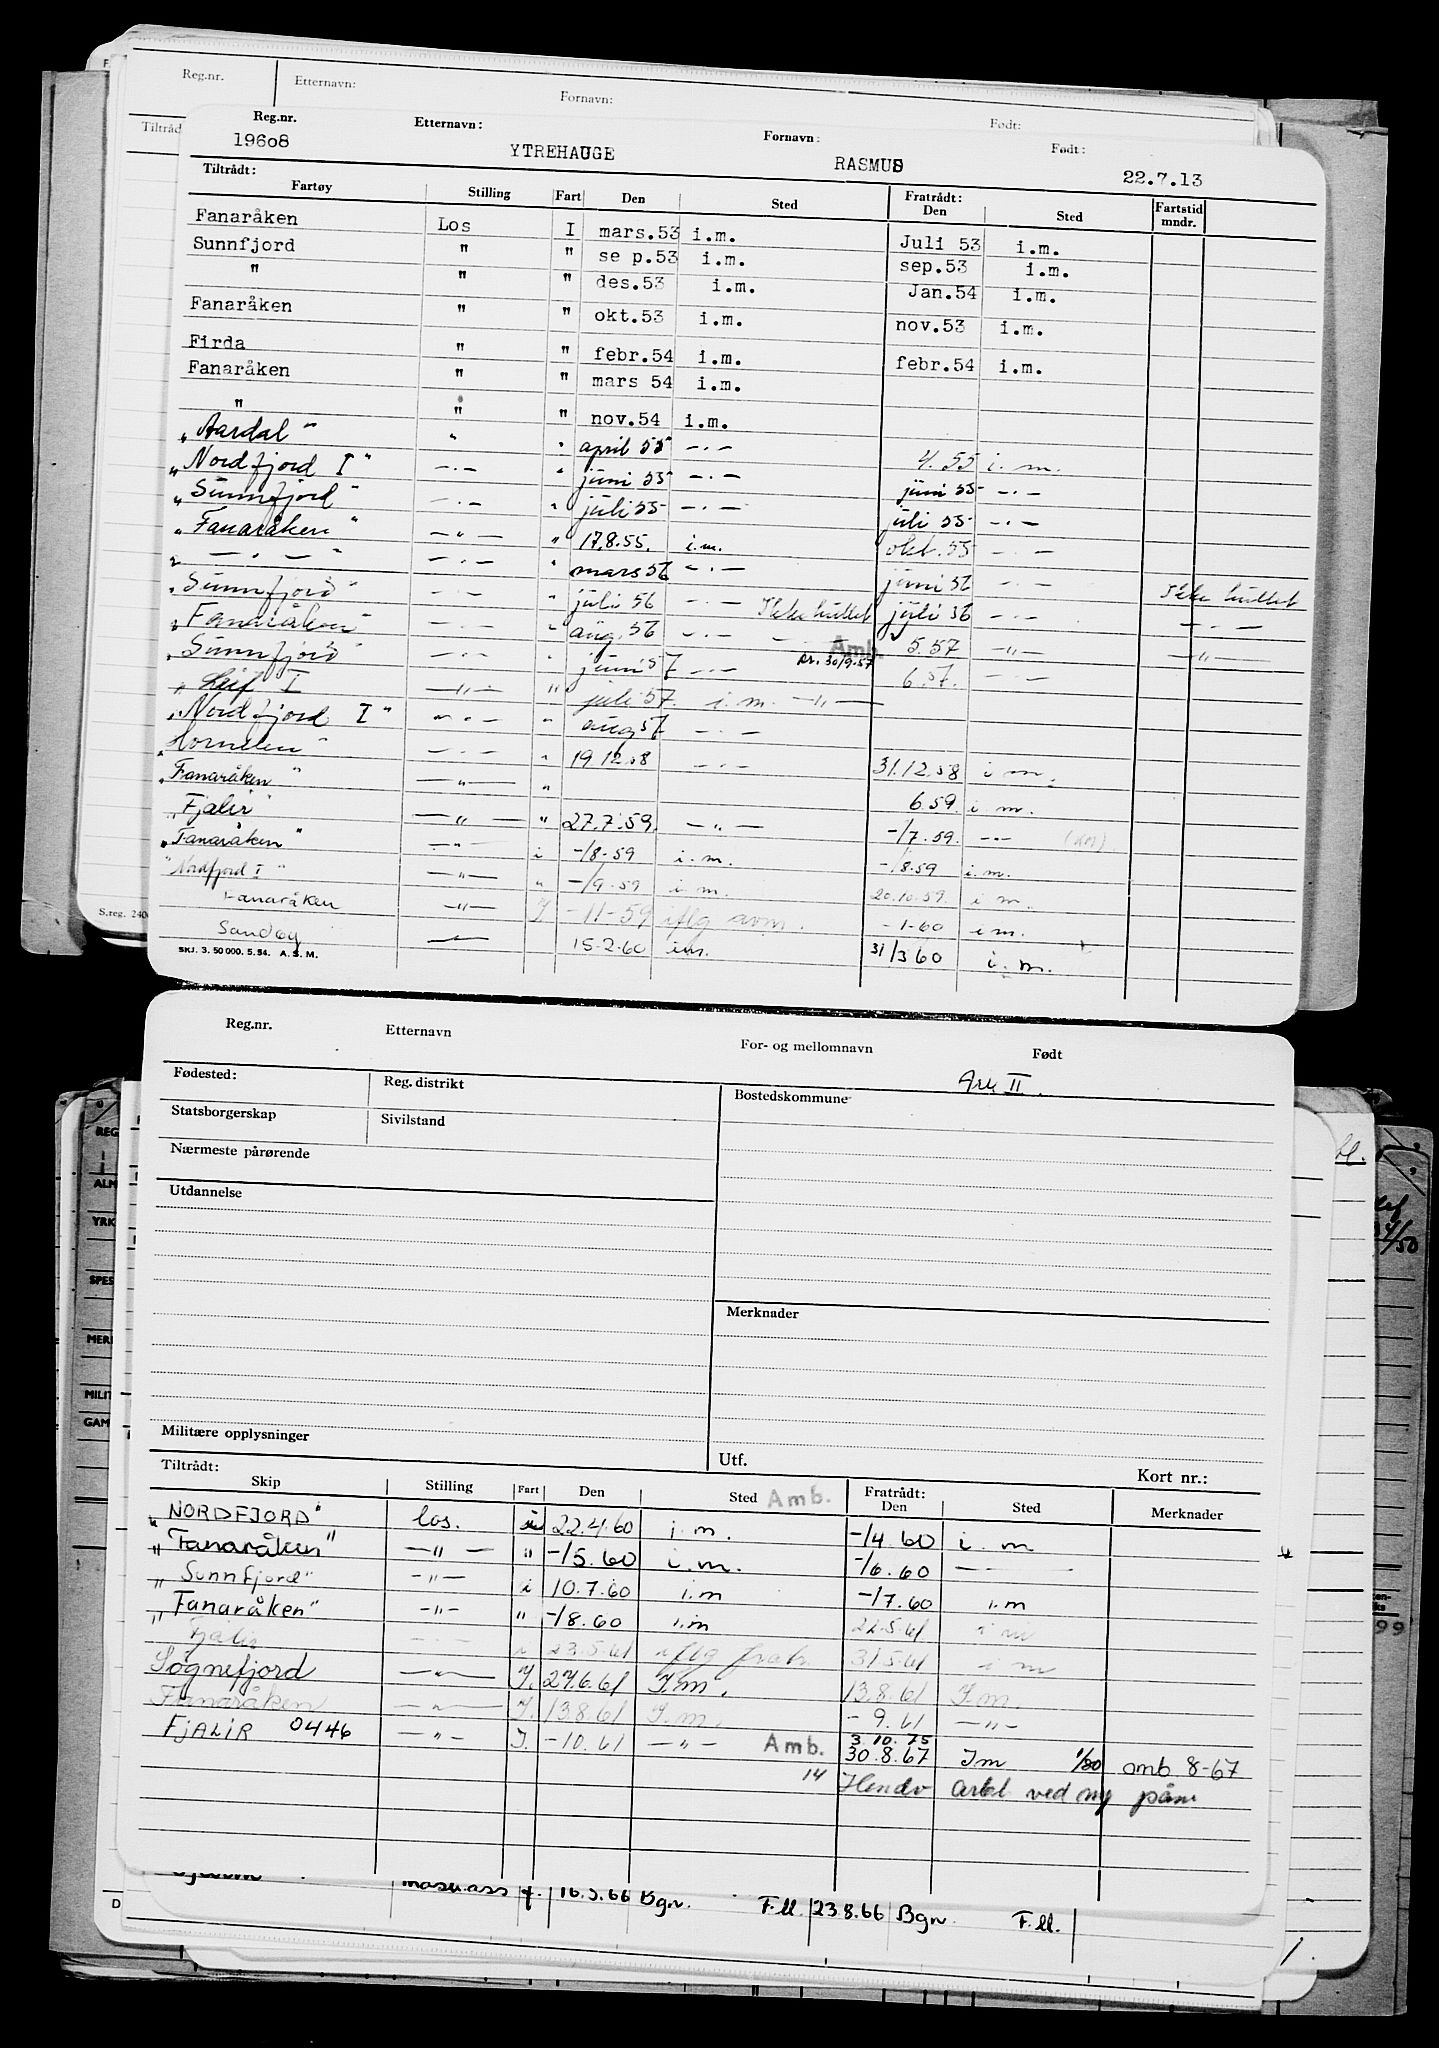 Reg.nr. Etternavn: Fornavn: Født:
Reg.nr. Etternavn: Fornavn: Født:
19608 YTREHAUGE RASMUS 22.7.13
Tiltrådt: Fratrådt:
Fartøy Stilling Fart Den Sted Den Sted Fartstid mndr.
Fanaråken Los I mars.53 i.m. Juli 53 i.m.
Sunnfjord " " se p.53 i.m. sep.53 i.m.
" " " des.53 i.m. Jan.54 i.m.
Fanaråken " " okt.53 i.m. nov.53 i.m.
Firda " " febr.54 i.m. febr.54 i.m.
Fanaråken " " mars 54 i.m.
" " " nov.54 i.m.
"Aardal" " " april 55 -.- 4.55 i.m.
"Nordfjord I" -.- " juni 55 -.- juni 55 -.-
"Sunnfjord" -.- " juli 55 -.- juli 55 -.-
"Fanaråken" -"- " 17.8.55. i.m. okt.55 -.-
" -.- " -.- " mars 56 -.- juni 56 -.- Ikke hullet
"Sunnfjord" -.- " juli 56 -.- Ikke hullet juli 56 -.- -.-
"Fanaråken" -.- " aug.56 -.- -.- Amb. 5.57 -"- -"-
"Sunnfjord" -.- " juni 57 -.- 30/9-57 6.57. -.-
"Leif I -"- " juli 57. i.m. -"-
"Nordfjord I" -.- " aug 57 -.-
"Hornelen" -.- " 19.12.58 -.- 31.12.58 i m.
"Fanaråken" -"- " 6.59. i m.
"Fjalir" -"- " 27.7.59. -"- -/7.59. -"- (KM)
"Fanaråken" -"- i -/8-59 i.m. -/8.59 i.m.
"Nordfjord I" -"- " -/9.59 i.m. 20.10.59. i m.
Fanaråken -"- I -11-59 iflg avm. -1-60 i m.
Sandøy 15-2-60 i m. 31/3 60 i.m.
SKJ. 3. 50 000. 5. 54. A. S. M.
Reg.nr. Etternavn For- og mellomnavn Født
Ark II.
Fødested: Reg.distrikt Bostedskommune
Statsborgerskap Sivilstand
Nærmeste pårørende
Utdannelse
Merknader
Militære opplysninger Utf. Kort nr.:
Tiltrådt: Fratrådt:
Skip Stilling Fart Den Sted Amb. Den Sted Merknader
"NORDFJORD" los. i 22.4.60 i.m. -/4 60 i m
"Fanaråken" -"- " -/5.60 i.m. -/6.60
"Sunnfjord" -"- i 10.7.60 i.m -/7.60 i.m
"Fanaråken" -"- " -/8.60 i.m 22.5.61 i m
Fjalir -.- i 23.5.61 iflg fratr. 31.5.61 i m
Sognefjord -"- I. 27.6.61 I.m. 13.8.61 I m
Fanaråken -"- I. 13.8.61 I.m. - 9.61 -"-
FJALIR 0446 -"- I. -10.61 -"- Amb. 3.10.75
30.8.67 Im 1/80 amb 8-67
14 ved
16.5.66 Bgn. F.ll. 23.8.66 Bgn. F.ll.